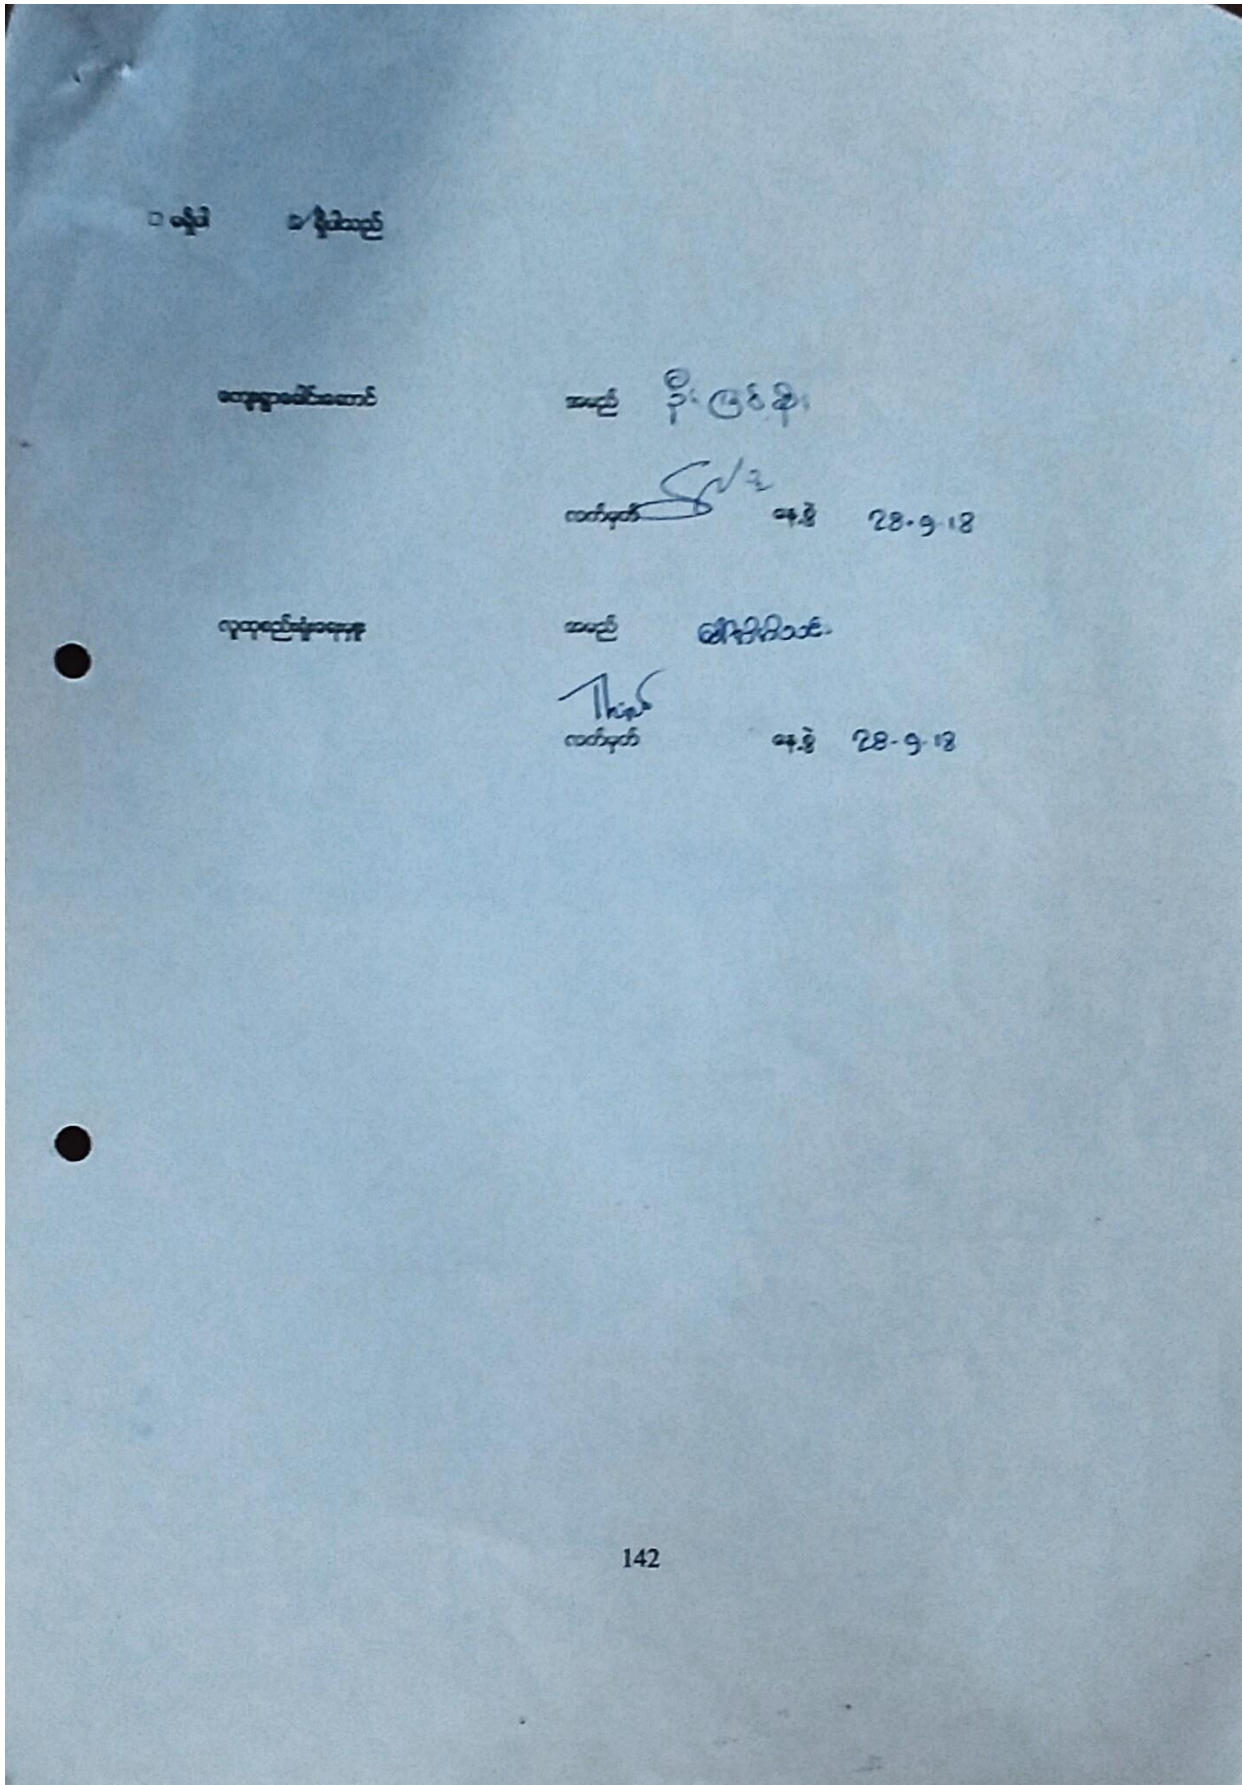 □ မရှိပါ ☑ ရှိပါသည်
ကျေးရွာခေါင်းဆောင် အမည် ဦး မြင့်စိုး
လက်မှတ် နေ့စွဲ 28-9-18
လူထုစည်းရုံးရေးမှူး အမည်
လက်မှတ် နေ့စွဲ 28-9-18
142